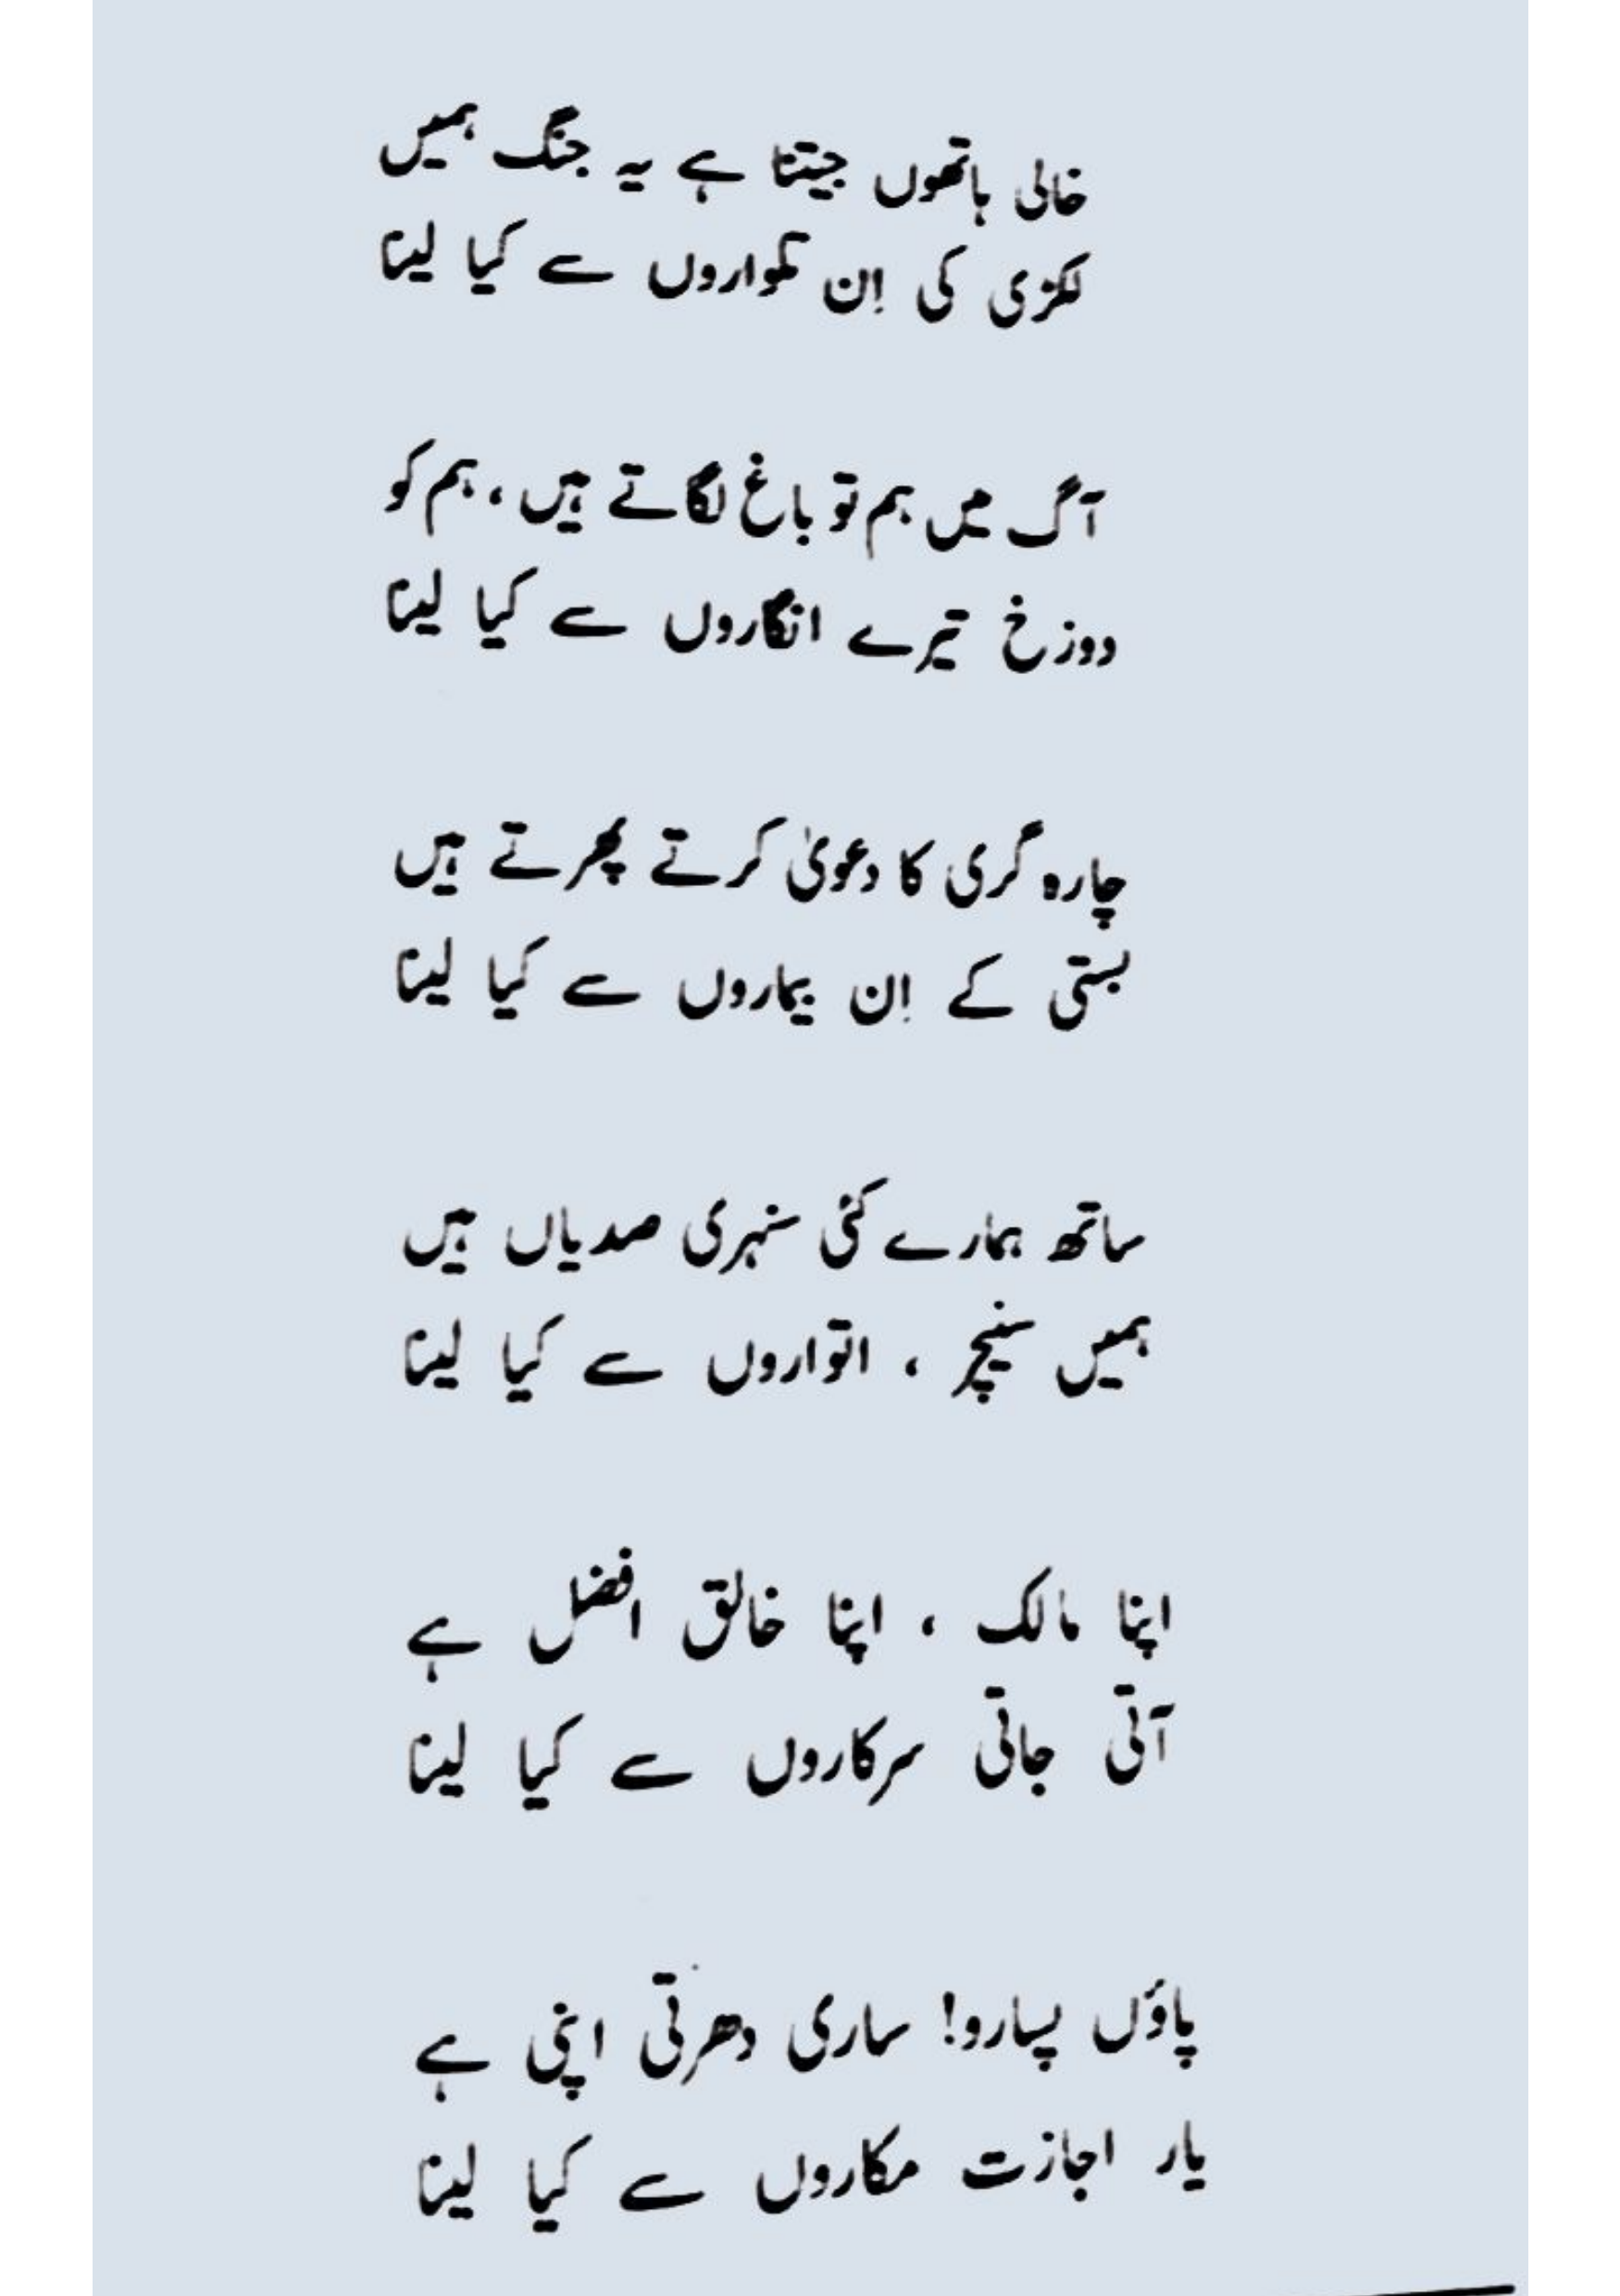 خالی ہاتھوں جیتنا ہے یہ جنگ ہمیں
لکڑی کی اِن تلواروں سے کیا لینا
آگ میں ہم تو باغ لگاتے ہیں، ہم کو
دوزخ تیرے انگاروں سے کیا لینا
چارہ گری کا دعویٰ کرتے پھرتے ہیں
بستی کے اِن بیماروں سے کیا لینا
ساتھ ہمارے کئی سنہری صدیاں ہیں
ہمیں سنیچر ، اتواروں سے کیا لینا
اپنا مالک ، اپنا خالق افضل ہے
آتی جاتی سرکاروں سے کیا لینا
پاؤں پسارو! ساری دھرتی اپنی ہے
یار اجازت مکاروں سے کیا لینا